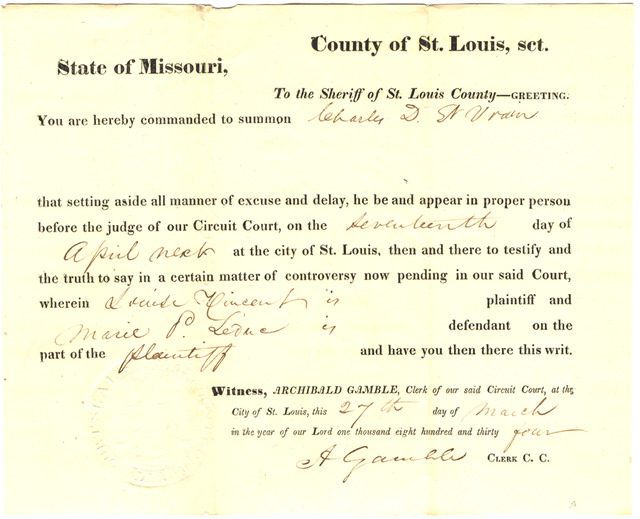 State of Missouri,
County of St. Louis, sct.
To the Sheriff of St. Louis County—GREETING.
You are hereby commanded to summon Charles D. St Vrain
that setting aside all manner of excuse and delay, he be and appear in proper person
before the judge of our Circuit Court, on the seventeenth day of
April next at the city of St. Louis, then and there to testify and
the truth to say in a certain matter of controversy now pending in our said Court,
wherein Louise Vincent is plaintiff and
Marie P. Leduc is defendant on the
part of the plaintiff and have you then there this writ.
Witness, ARCHIBALD GAMBLE, Clerk of our said Circuit Court, at the
City of St. Louis, this 27th day of March
in the year of our Lord one thousand eight hundred and thirty four
A Gamble CLERK C. C.